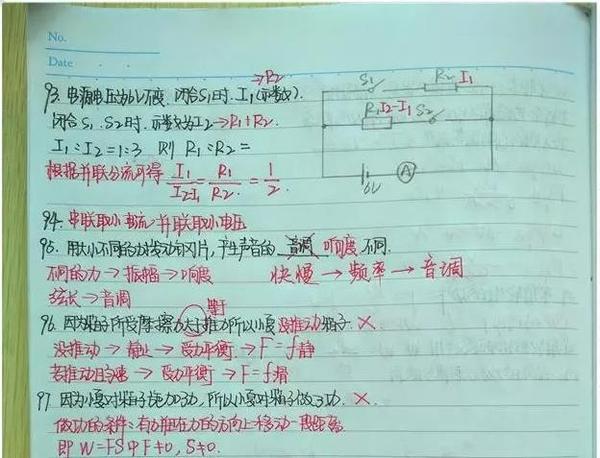 No.
Date
→R2
93. 电源电压为6V不变. 闭合S1时. I1(示数).
闭合S1、S2时. 示数为I2→R1+R2.
I1:I2=1:3 则 R1:R2=
根据并联分流可得 I1/(I2-I1) = R1/R2 = 1/2.
S1 R2 I1
R1 I2-I1 S2
6V A
94. 串联取小电流,并联取小电压
95. 用大小不同的力拨动钢片,产生声音的 音调 响度 不同.
不同的力→振幅→响度 快慢→频率→音调
弦长→音调
等于
96. 因为箱子所受摩擦力大于推力所以小夏没推动箱子. ×
没推动→静止→受力平衡.→F=f静
若推动匀速→受力平衡→F=f滑
97 因为小夏对箱子施加了力,所以小夏对箱子做了功. ×.
做功的条件:有力且在力的方向上移动一段距离
即 W=FS中F≠0,S≠0.